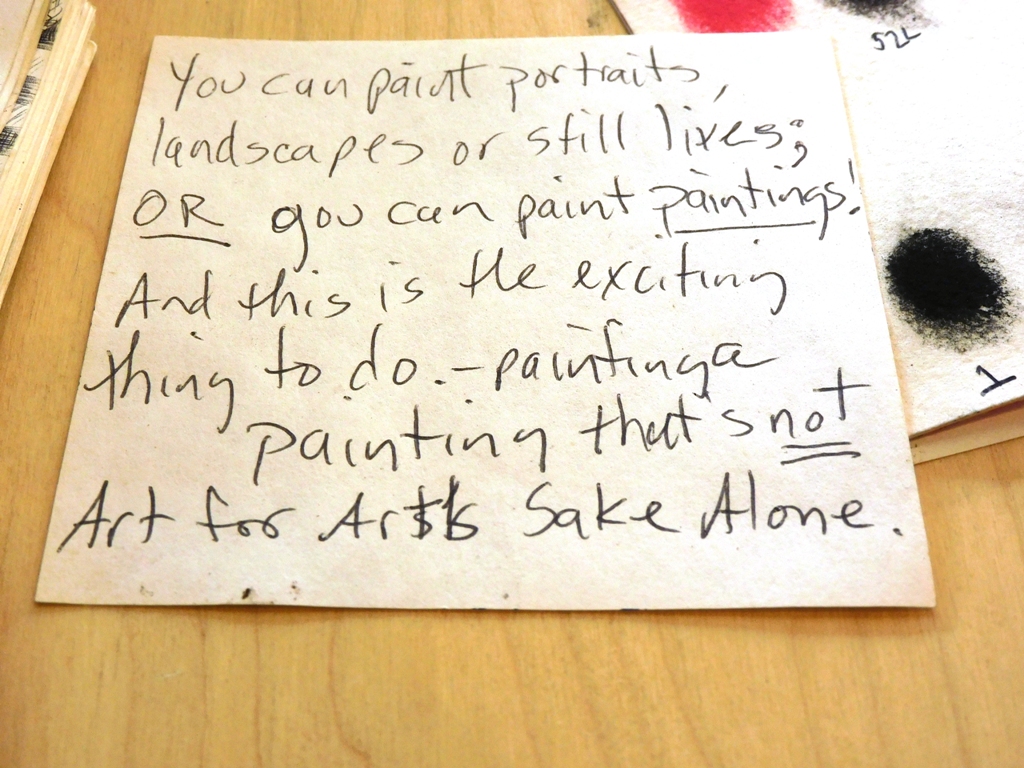 You can paint portraits,
landscapes or still lives;
OR you can paint paintings!
And this is the exciting
thing to do. – painting a
painting that's not
Art for Art's Sake Alone.
52L
1